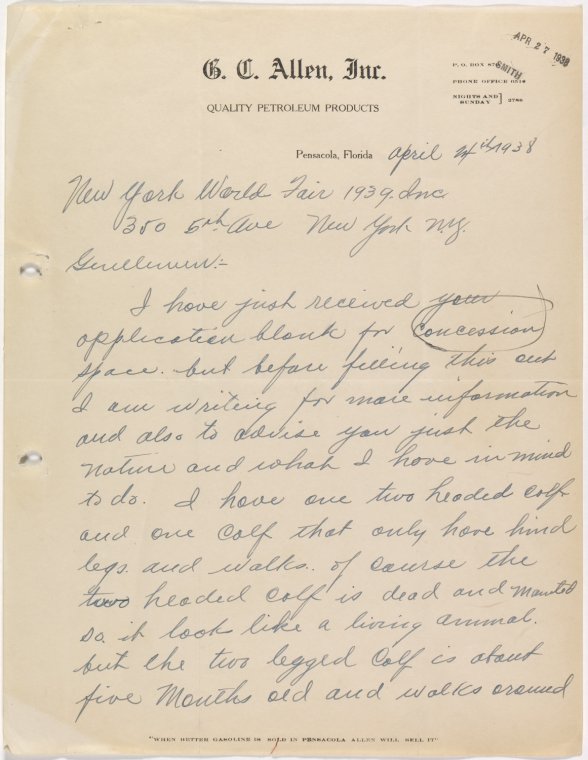 APR 27 1938
SMITH
G. C. Allen, Inc.
QUALITY PETROLEUM PRODUCTS
P. O. BOX
PHONE OFFICE
NIGHTS AND SUNDAY } 2786
Pensacola, Florida april 24th 1938
New York World Fair 1939. Inc
350 5th Ave New York N.Y.
Gentlemen:-
I have just received your
application blank for concession
space. but before filling this out
I am writing for more information
and also to advise you just the
nature and what I have in mind
to do. I have one two headed calf
and one calf that only have hind
legs. and walks. of course the
two headed calf is dead and Mounted
so it look like a living animal.
but the two legged calf is about
five Months old and walks around
"WHEN BETTER GASOLINE IS SOLD IN PENSACOLA ALLEN WILL SELL IT"